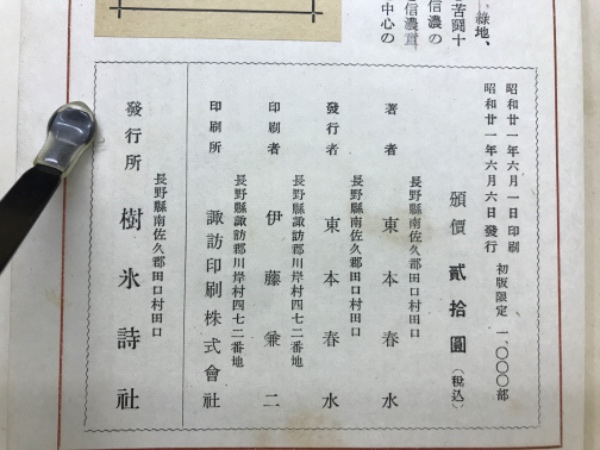 綠地、
苦闘十
信濃の
信濃宣
中心の
昭和廿一年六月一日印刷
昭和廿一年六月六日發行
初版限定 一、〇〇〇部
頒價 貳拾圓 (税込)
長野縣南佐久郡田口村田口
著者 東本春水
長野縣南佐久郡田口村田口
發行者 東本春水
長野縣諏訪郡川岸村四七二番地
印刷者 伊藤兼二
長野縣諏訪郡川岸村四七二番地
印刷所 諏訪印刷株式會社
長野縣南佐久郡田口村田口
發行所 樹氷詩社